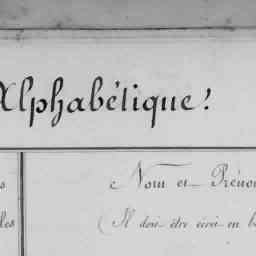 Alphabétique!
s Nom et Prénom
les (Il doit être écrit en b